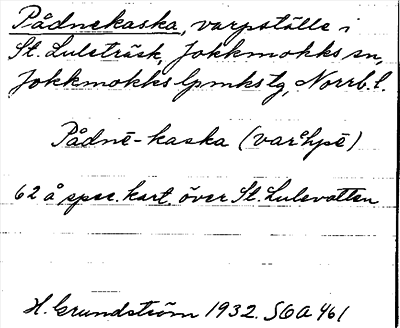 Pådnekaska, varpställe i
St. Luleträsk, Jokkmokks sn,
Jokkmokks lpmkstg, Norrb. l.
Pådnē-kaska (varåhpē)
62 å spec. kart. över St. Lulevatten
H. Grundström 1932. SOA 461